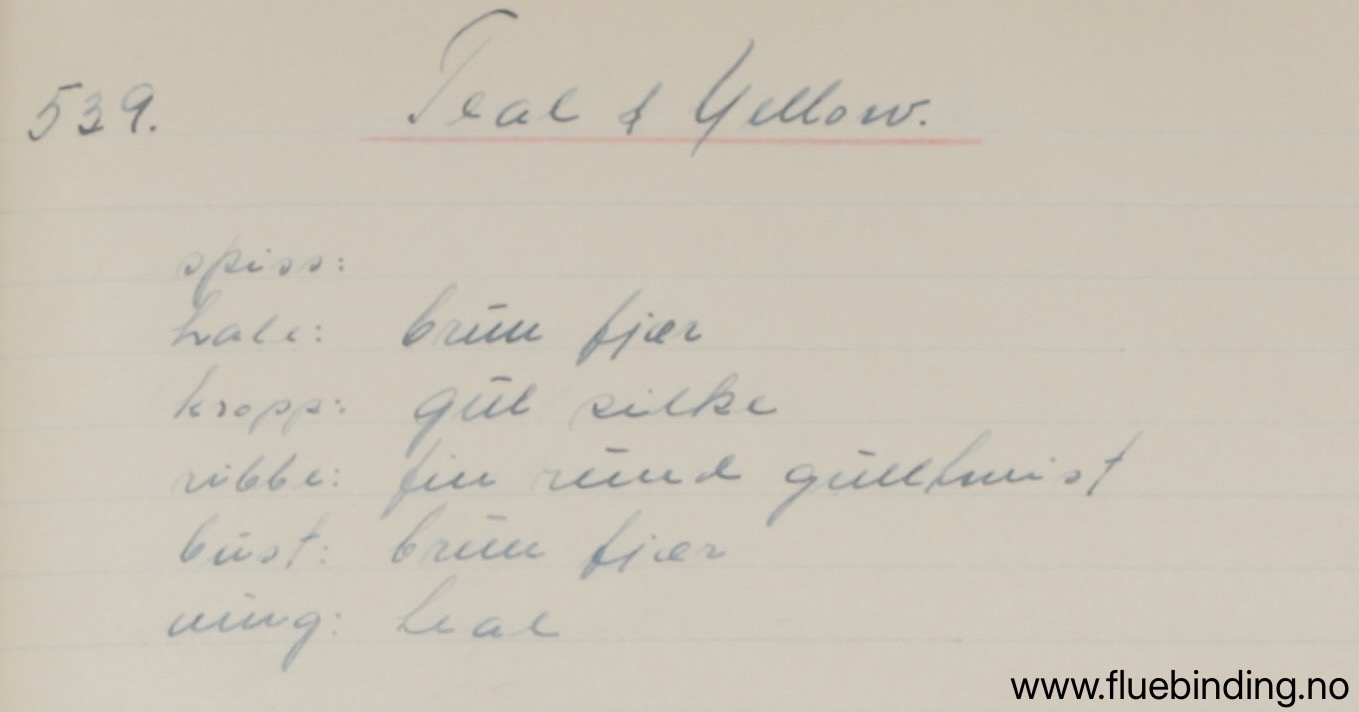 539. Teal & Yellow.
spiss:
hale: brun fjær
kropp: gul silke
ribbe: fin rund gulltwist
bust: brun fjær
ving: teal
www.fluebinding.no